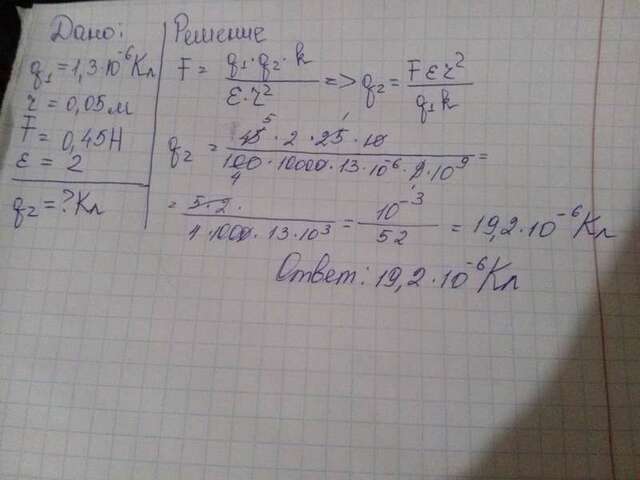 Дано:
q₁ = 1,3·10⁻⁶Кл
r = 0,05м
F = 0,45Н
ε = 2
q₂ = ? Кл
Решение
F = q₁·q₂·k / ε·r² => q₂ = Fεr² / q₁k
q₂ = 45 5·2·25·10 / 100 4·10000·13·10⁻⁶·9·10⁹ =
= 5·2· / 4·1000·13·10³ = 10⁻³ / 52 = 19,2·10⁻⁶Кл
Ответ: 19,2·10⁻⁶Кл